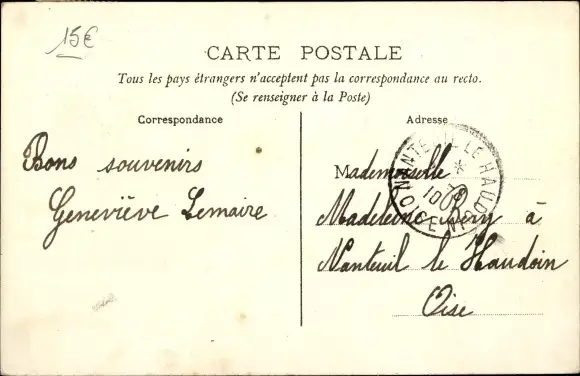 15€
CARTE POSTALE
Tous les pays étrangers n'acceptent pas la correspondance au recto.
(Se renseigner à la Poste)
Correspondance
Adresse
Bons souvenirs
Geneviève Lemaire
Mademoiselle
Madeleine Réry à
Nanteuil le Haudoin
Oise
NANTEUIL LE HAUDOUIN
OISE